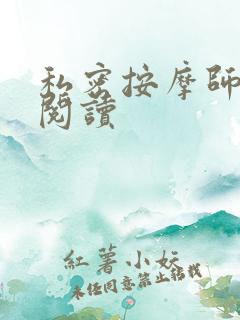 私密按摩師
閱讀
紅薯小妖
未经同意禁止转载